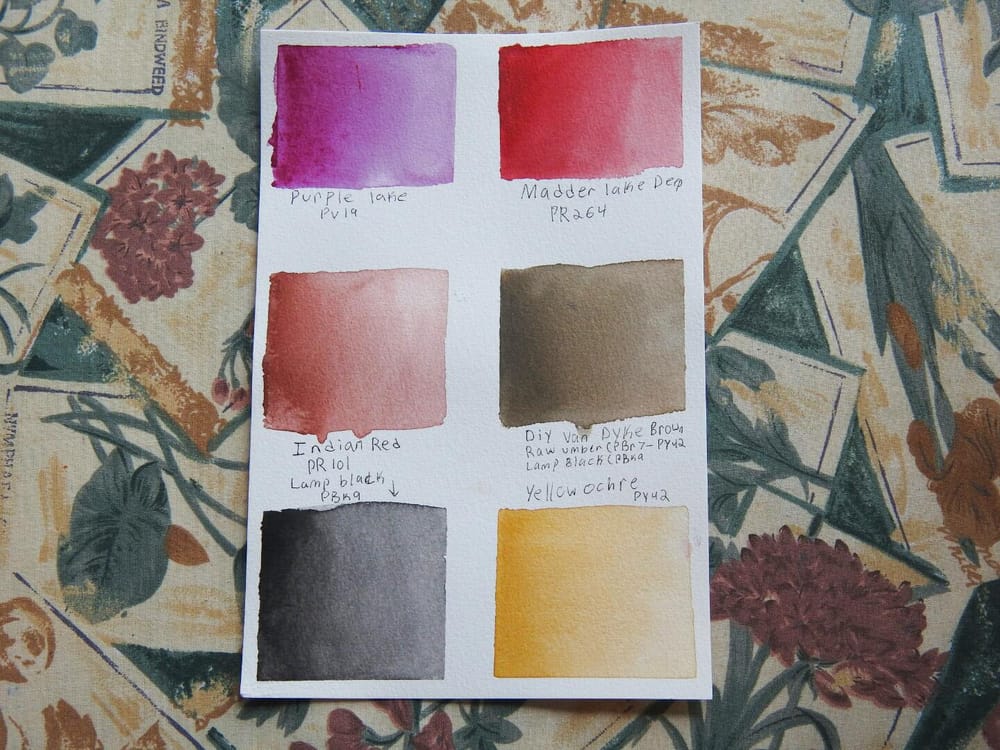 A BINDWEED
Purple lake
PV19
Madder lake Dep
PR264
Indian Red
PR101
Lamp black
PBK9
DiY Van Dyke Brown
Raw umber (PBr7-PY42
Lamp Black (PBK9
Yellow ochre
PY42